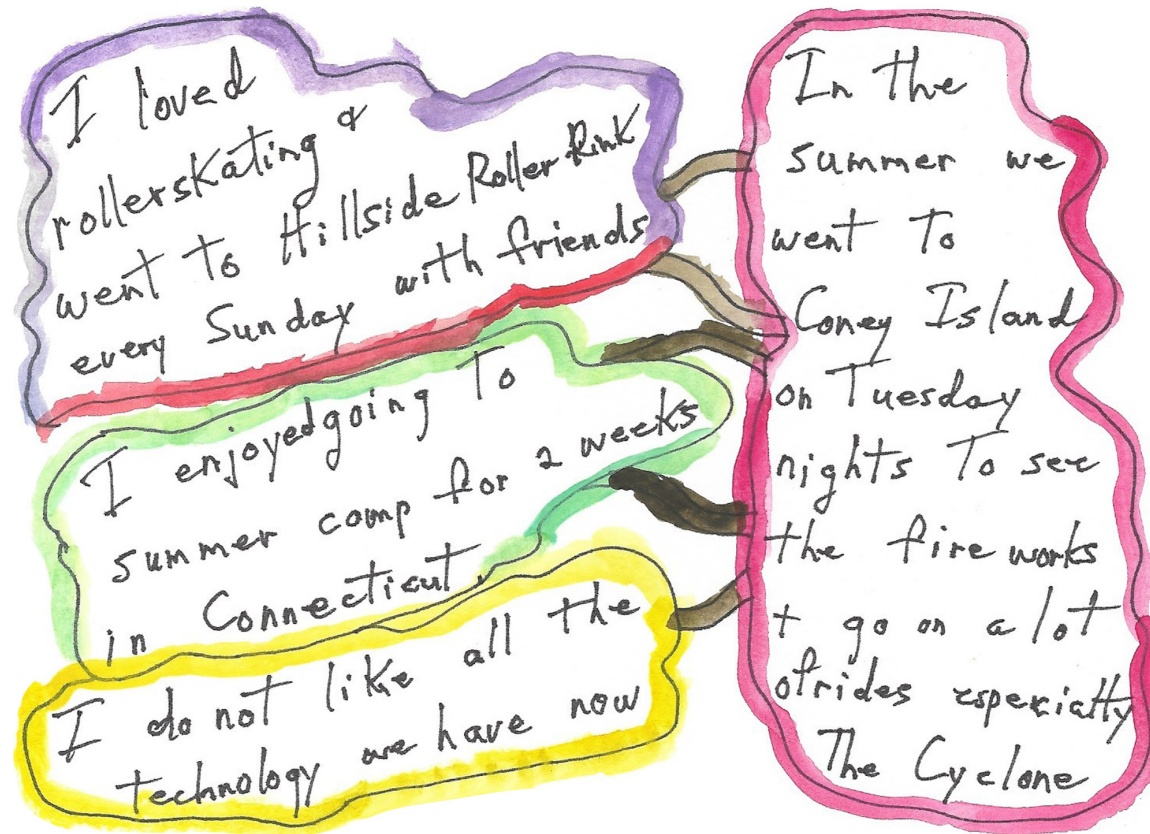 I loved
rollerskating &
went to Hillside Roller Rink
every Sunday with friends
I enjoyed going To
summer camp for 2 weeks
in Connecticut.
I do not like all the
technology we have now
In the
summer we
went To
Coney Island
on Tuesday
nights To see
the fire works
+ go on a lot
of rides especially
The Cyclone